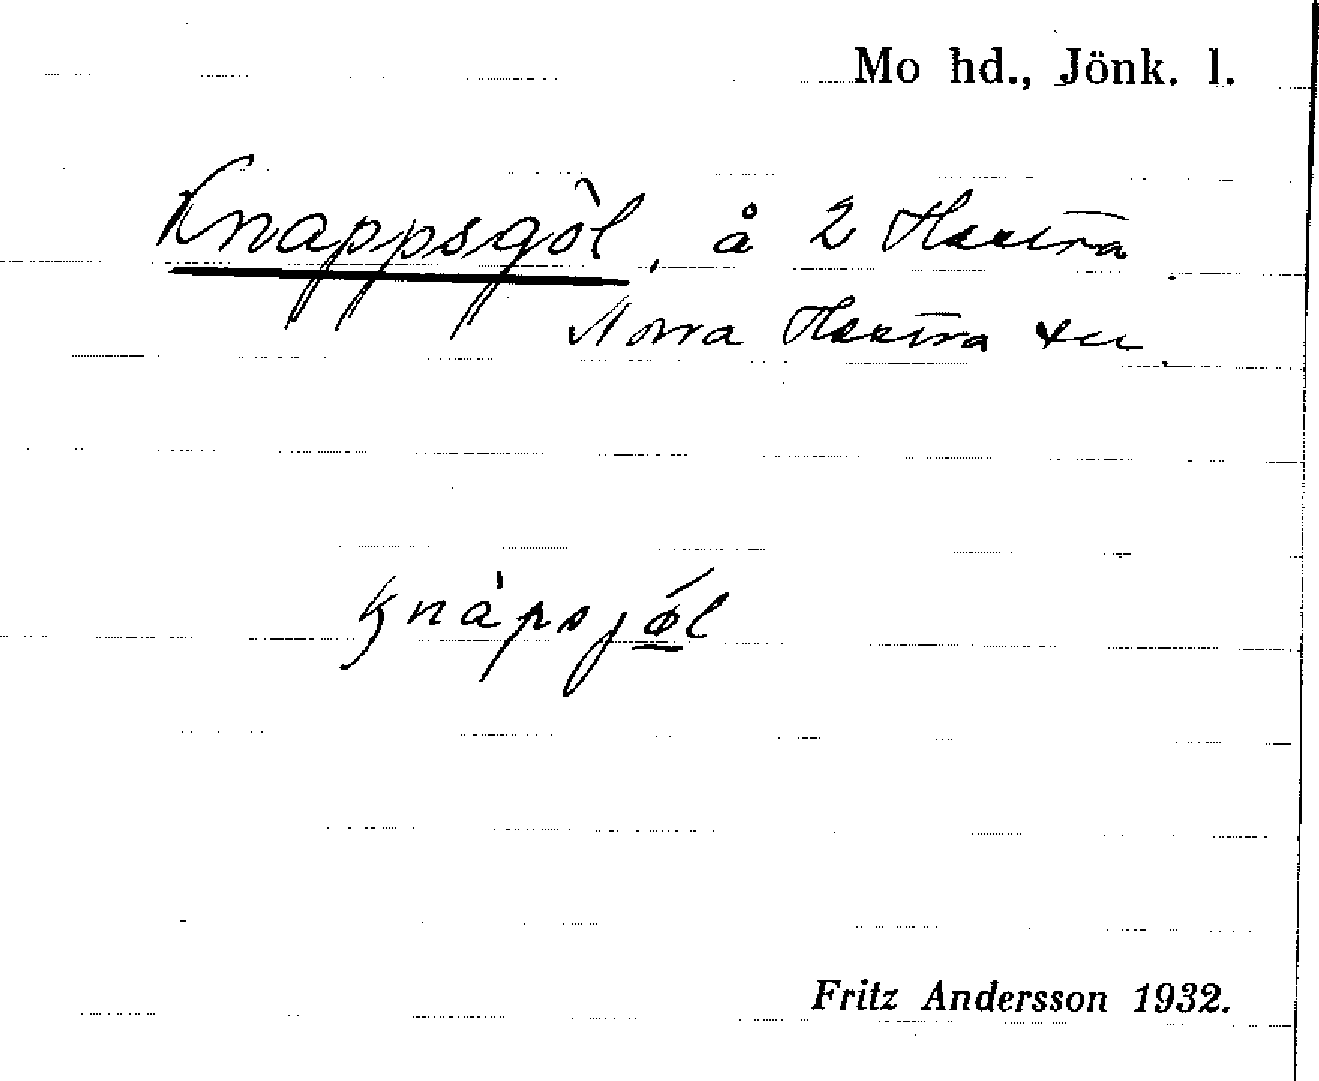 Mo hd., Jönk. l.
Knappsgöl, å 2 Haetra.
Norra Haetra sn.
knápsjøl
Fritz Andersson 1932.